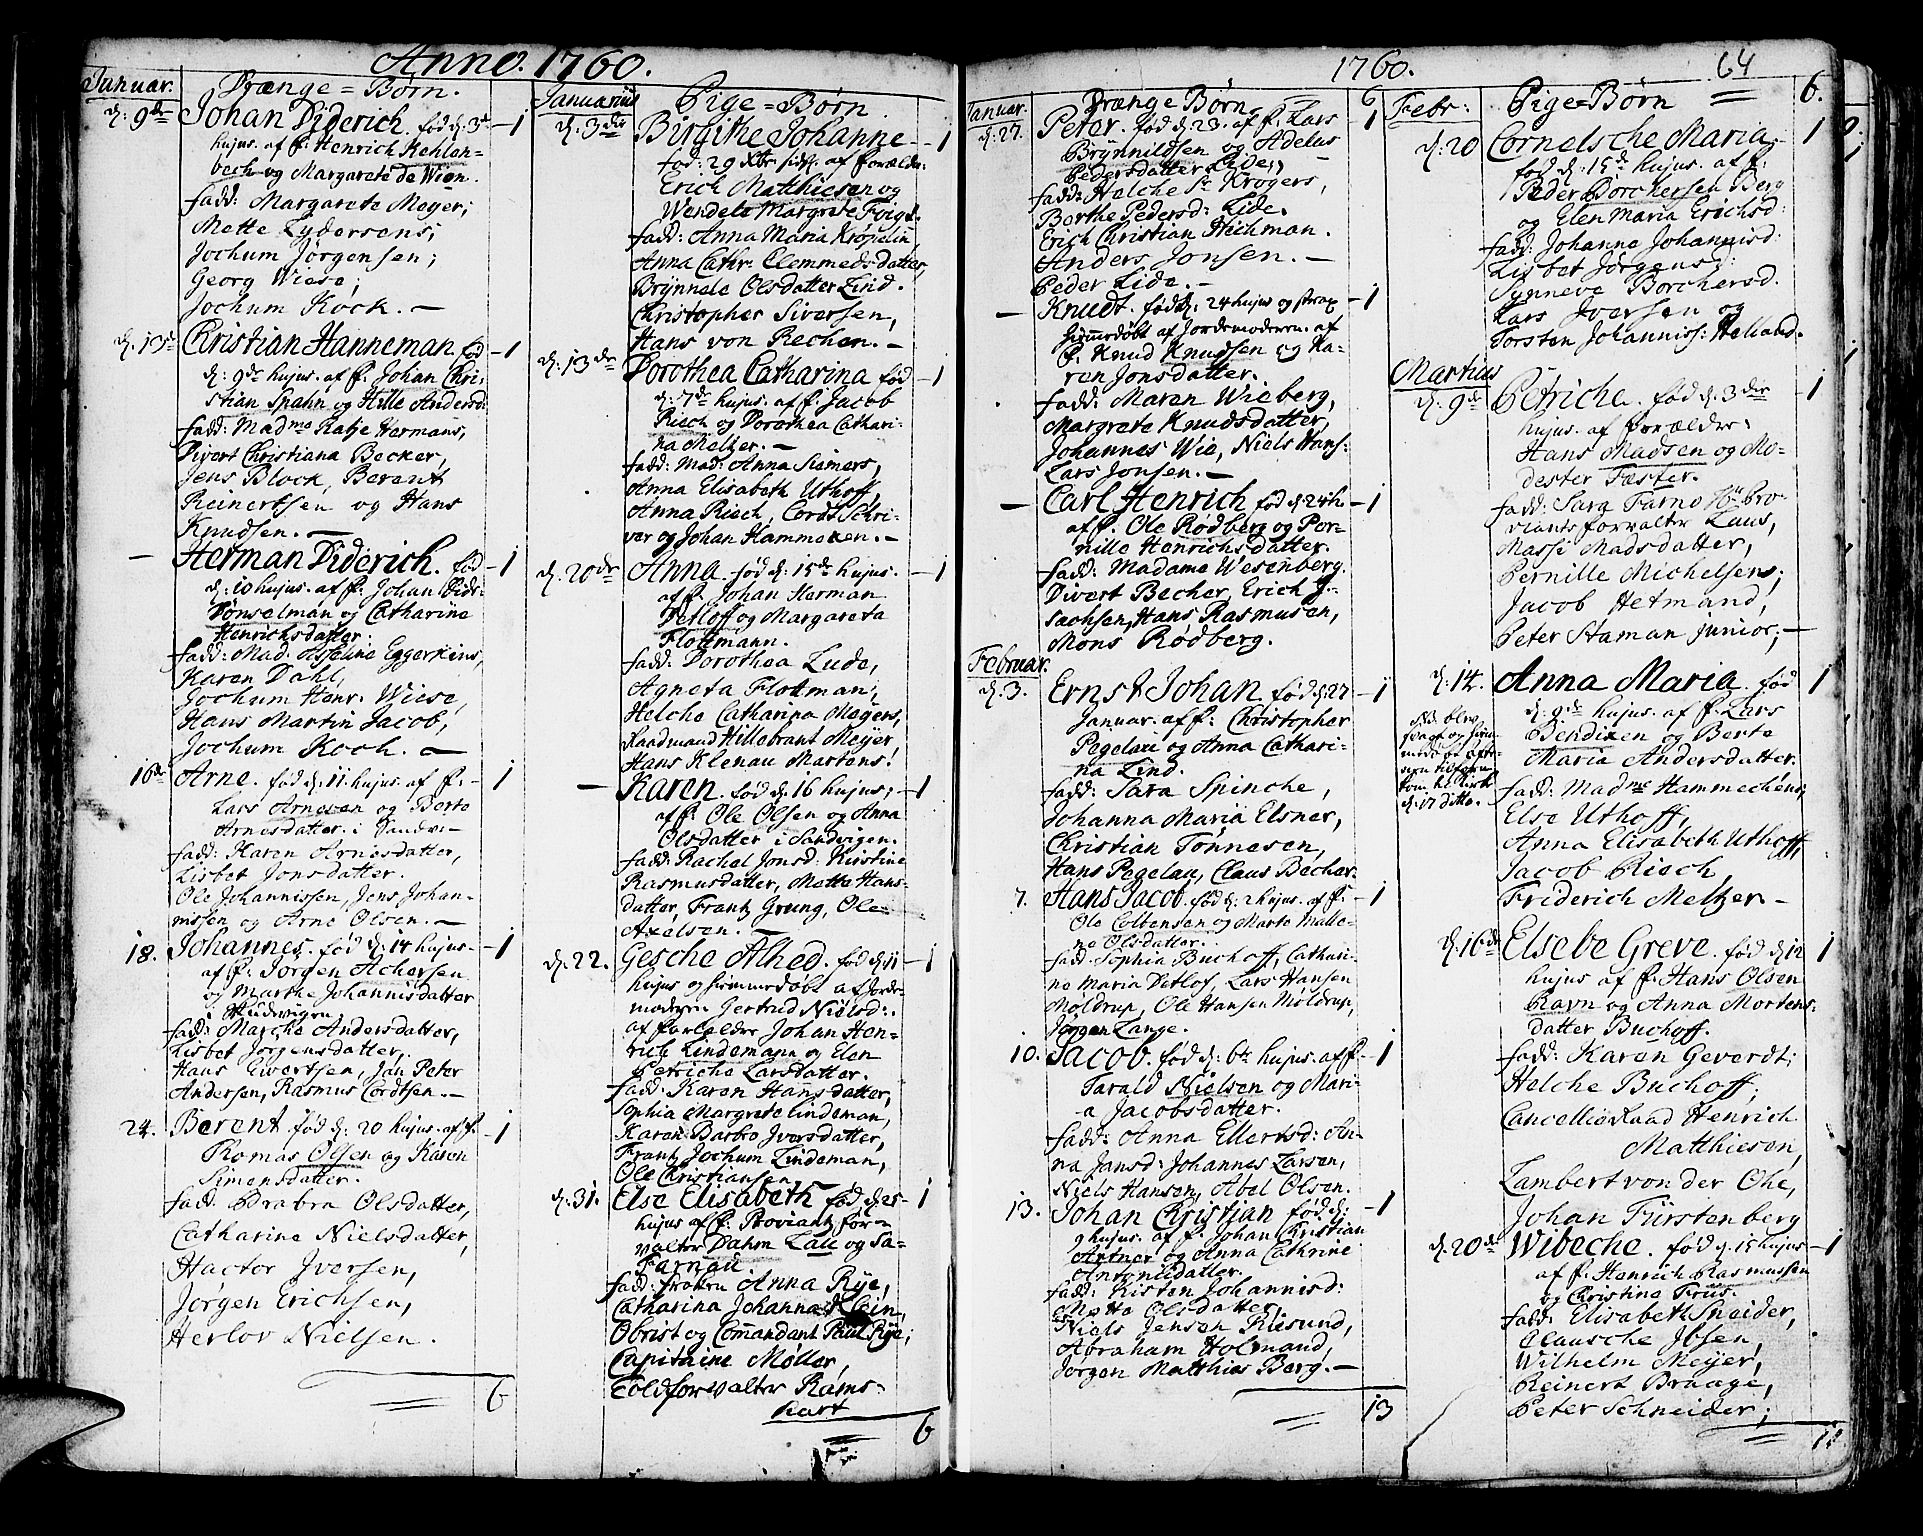 Anno. 1760.
Januar.
Drænge = Børn.
d: 9de
Johan Diderich. fød d. 3d
1
hujus. af f: Henrich Kehlen-
bech og Margarete de Wien.
fadd: Margarete Meyer;
Mette Lydersens;
Jochum Jørgensen;
Georg Wiese;
Jochum Kock. —
d. 13d
Christian Hanneman fød
1
d: 9de hujus. af f: Johan Chri-
stian Spahn og Hille Andersd:
fadd: Madme Katje Hermans,
Divert Christiana Becker,
Jens Block, Berent
Reinertsen og Hans
Knudsen. —
—
Herman Diderich. fød
1
d: 10 hujus. af f: Johan Didr:
Tönselman og Catharine
Henrichsdatter.
fadd: Mad. Asseline Eggerkins,
Karen Dahl,
Jochum Henr. Wiese,
Hans Martin Jacob,
Jochum Koch. —
16de
Arne. fød d: 11 hujus. af f:
1
Lars Arnesen og Berte
Arnesdatter. i Sandvi-
fadd: Karen Arnesdatter,
Lisbet Jonsdatter.
Ole Johannissen, Jens Johan-
nissen og Arne Olsen. —
18.
Johannes. fød d: 14 hujus.
1
af f: Jørgen Achersen
og Marthe Johannisdatter
i Sudvigen
fadd: Marche Andersdatter,
Lisbet Jørgensdatter,
Hans Givertsen, Jan Peter
Andersen, Rasmus Cordtsen. —
24.
Berent. fød d: 20 hujus. af f:
1
Thomas Olsen og Karen
Simensdatter.
fadd: Barbra Olsdatter,
Catharine Nielsdatter,
Hactor Iversen,
Jørgen Erichsen,
Herlov Nielsen.
6
Januarius
Pige = Børn
d: 3die
Birgithe Johanne
1
fød: 29 Xbr: sidst. af forældr:
Erich Matthiesen og
Wendele Margrete Foigt.
fadd: Anna Maria Krøpelin,
Anna Cathr. Clemmedsdatter,
Brynnele Olsdatter Lind.
Christopher Siversen,
Hans von Rechen. —
d: 13de
Dorothea Catharina fød
1
d: 7de hujus. af f: Jacob
Riech og Dorothea Cathari-
na Meltzer. —
fadd: Mad: Anna Siemers,
Anna Elisabeth Uthoff,
Anna Riech, Cordt Schri-
ver og Johan Hammeken. —
d: 20de
Anna. fød d: 15de hujus.
1
af f: Johan Herman
Detloff og Margareta
Flottmann.
fadd: Dorothea Lude,
Agneta Flottman,
Helche Catharina Meyers,
Raadmand Hillebrant Meyer,
Hans Klenau Martens.
—
Karen. fød d: 16 hujus;
1
af f: Ole Olsen og Anna
Olsdatter i Sandvigen.
fadd: Rachel Jonsd: Kirstine
Rasmusdatter, Mette Hans-
datter, Frantz Grung, Ole
Axelsen. —
d: 22.
Gesche Alhed. fød d: 11
1
hujus og hiemmedøbt af Jorde-
moderen Gertrud Nielsd:
af forældre Johan Hen-
rich Lindemann og Elen
Petriche Larsdatter.
fadd: Karen Hansdatter,
Sophia Margrete Lindeman,
Karen Barbro Iversdatter,
Frantz Jochum Lindeman,
Ole Christiansen,
d: 31.
Else Elisabeth fød d: 25
1
hujus af f: Proviantz for-
valter Dahm Lau og Sa-
Farnau.
fadd: frøken Anna Rye,
Catharina Johanna Klein,
Obrist og Com̄andant Paul Rye;
Capitaine Møller,
Toldforvalter Rams-
hart
6
1760.
64
Januar.
Drænge Børn
6
d: 27.
Peter. fød d: 23. af f: Lars
1
Brynnildsen og Adelus
Pedersdatter Lide;
fadd: Helche Sr Krogers,
Berthe Pedersd: Lide,
Erich Christian Stichman.
Anders Jonsen. —
Peder Lide. —
—
Knudt. fød d: 24 hujus og strax
1
hiemmedøbt af Jordemoderen. af
f: Knud Knudsen og Ka-
ren Jonsdatter.
fadd: Maren Wieberg,
Margrete Knudsdatter,
Johannes Wie, Niels Hans:
Lars Jonsen. —
—
Carl Henrich fød d: 24 h.
1
af f: Ole Rødberg og Per-
nille Henrichsdatter.
fadd: Madame Wesenberg.
Divert Becher, Erich J-
sachsen, Hans Rasmusen,
Mons Rødberg.
Februar.
d: 3.
Ernst Johan fød d: 27
1
Januar. af f: Christopher
Pegelau og Anna Cathari-
na Lind.
fadd: Sara Spinche,
Johanna Maria Elsner,
Christian Tønnesen,
Hans Pegelau, Claus Becher.
7.
Hans Jacob. fød d: 2 hujus. af f:
1
Ole Colbensen og Marte Malle-
ne Olsdatter.
fad: Sophia Buchoff, Cathari-
na Maria Detlof, Lars Hansen
Moldrup, Ole Hansen Moldrup,
Jørgen Lange.
10.
Jacob. fød d: 6te hujus. af f:
1
Tarald Nielsen og Mari-
a Jacobsdatter.
fadd: Anna Ellertsd: An-
na Jansd: Johannes Larsen,
Niels Hansen, Abel Olsen.
13.
Johan Christian fød d:
1
9 hujus. af f: Johan Christian
Artner og Anna Cathrine
Antonisdatter.
fadd: Kisten Johannisd:
Mette Olsdatter,
Niels Jensen Riesund,
Abraham Holmand,
Jørgen Matthias Berg. —
13
Febr:
Pige = Børn
6.
d: 20
Cornelsche Maria
1
fød d: 15de hujus. af f:
Peder Borchersen Berg
og Elen Maria Erichsd:
fadd: Johanne Johannisd:
Lisbet Jørgensd:
Synneve Borchersd.
Lars Iversen og
Torsten Johanniss: Helland.
Martius
d: 9de
Petriche. fød d: 3die
1
hujus. af forældre:
Hans Madsen og Mo-
dester Tæster.
fadd: Sara Farno Hr Pro-
viantsforvalter Laus,
Massi Madsdatter,
Pernille Michelsens;
Jacob Hetmand,
Peter Staman junior; —
d: 14.
Anna Maria. fød
1
d: 9de hujus. af f: Lars
Bendixen og Berte
Maria Andersdatter.
NB. blev
svag og hiem-
medøbt
kom til kirke
d: 17 ditto.
fadd: Madme Hammechens,
Else Uthoff,
Anna Elisabeth Uthoff,
Jacob Riech,
Friderich Meltzer —
d: 16de
Elsebe Greve. fød d: 12
1
hujus af f: Hans Olsen
Ravn og Anna Mortens-
datter Buchoff.
fadd: Karen Geverdt;
Helche Buchoff;
Cancellie Raad Henrich
Matthiesen,
Lambert von der Ohe,
Johan Fürstenberg
d: 20de
Wibeche. fød d: 15 hujus
1
af f: Henrich Rasmussen
og Christine Friis.
fadd: Elisabeth Sneider,
Clausche Ibsen,
Wilhelm Meyer,
Reinert Braage,
Peter Schneider;